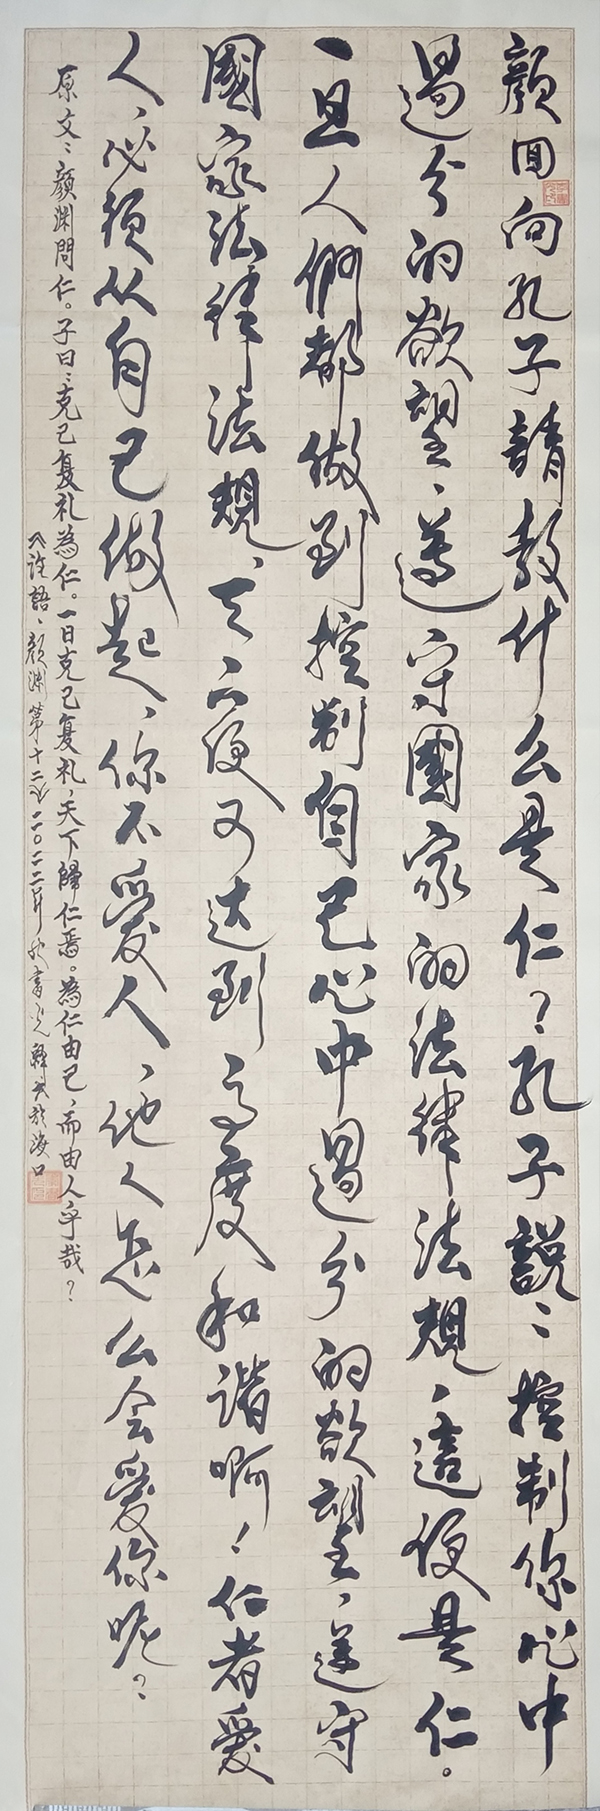 顔回向孔子請教什么是仁？孔子説：控制你心中
過分的欲望、遵守國家的法律法規、這便是仁。
一旦人們都做到控制自己心中過分的欲望、遵守
國家法律法規、天下便又達到高度和諧啊！仁者愛
人、必須从自己做起、你不愛人、他人怎么会愛你呢？
原文：顔渊問仁。子曰：克己复礼為仁。一日克己复礼，天下歸仁焉。為仁由己，而由人乎哉？
論語、顔渊第十二 二〇二二年秋書 於海口